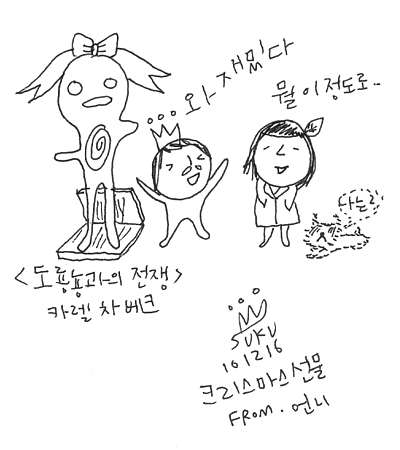 와 재밌다
뭘 이정도로..
나는?
<도룡뇽과의 전쟁>
카렐 차베크
SUKU
101216
크리스마스선물
FROM. 언니